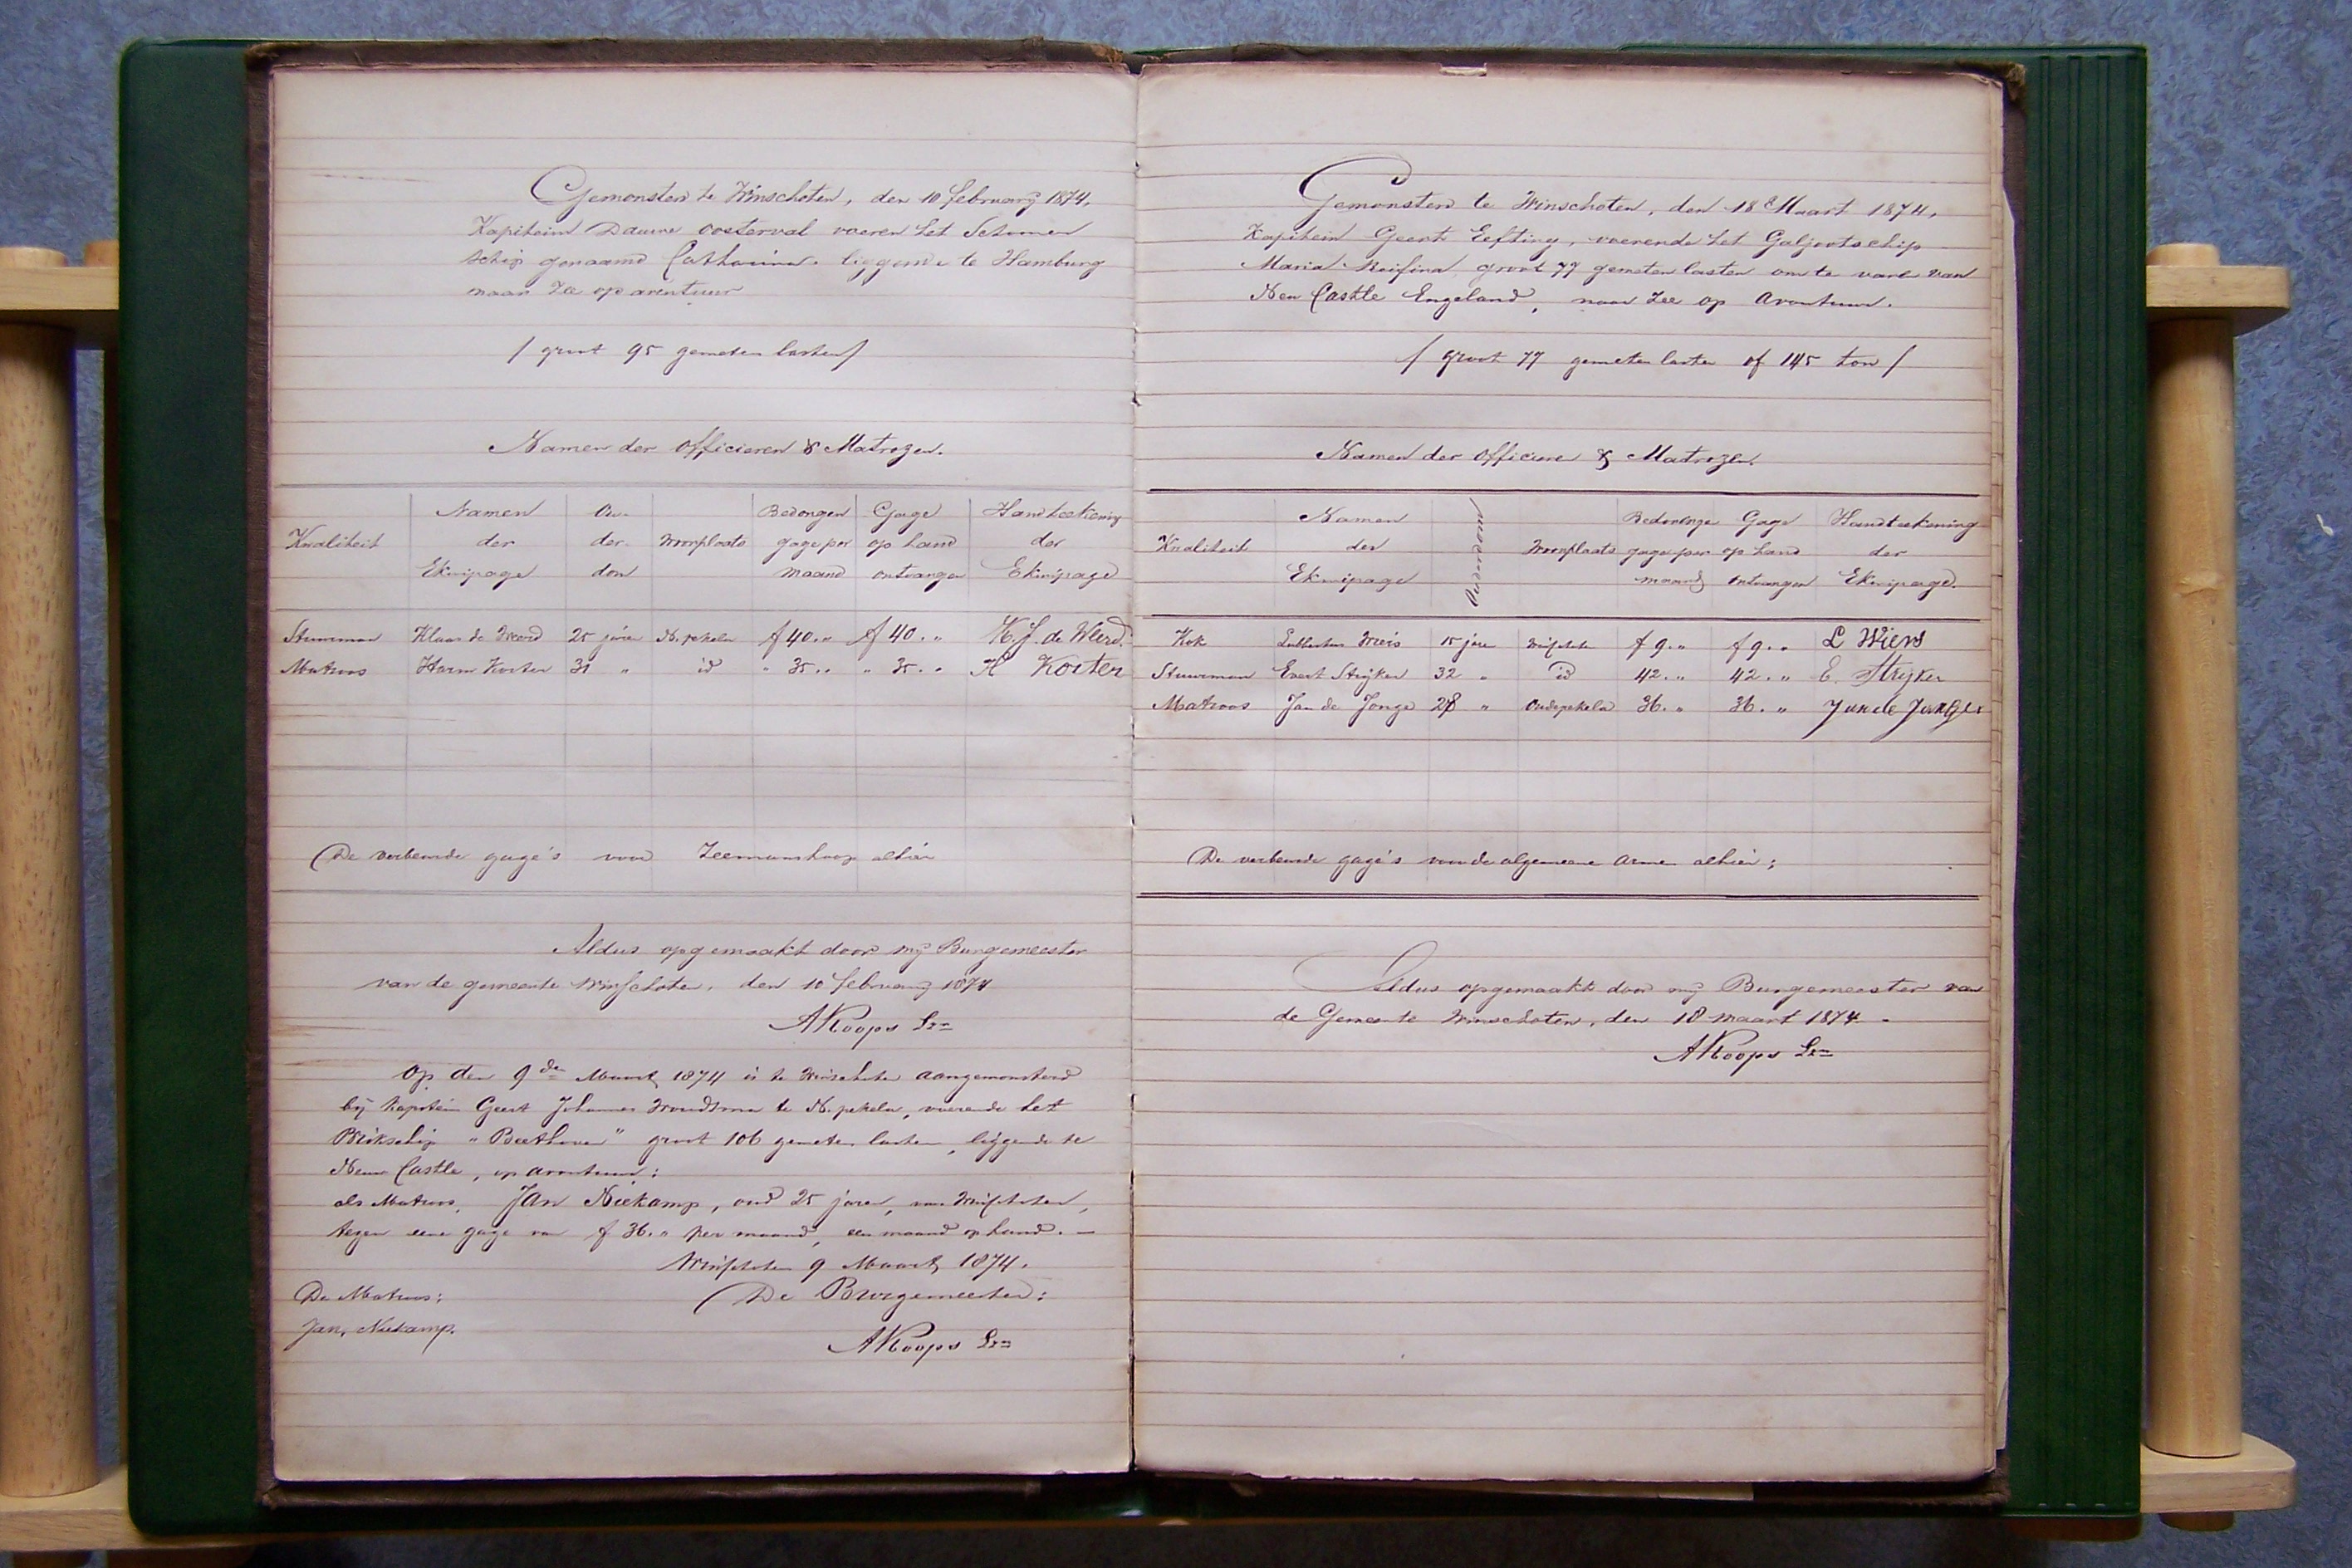 Gemonsterd te Winschoten, den 10 february 1874.
Kapitein Douwe Oosterval voeren het Schoener
schip genaamd Catharina. liggende te Hamburg
naar Zee op avontuur
/ groot 95 gemeten lasten /
Namen der Officieren & Matrozen.
Kwaliteit Namen der Ekwipage Ou- der- dom Woonplaats Bedongen gage per maand Gage op hand ontvangen Handteekening der Ekwipage
Stuurman Klaas de Weerd 25 jaren N. pekela f 40. " f 40. " K. J. de Weerd.
Matroos Harm Koster 31 " id " 35. " " 35. " H Koster
De verbeurde gage's voor Zeemanshoop alhier
Aldus opgemaakt door mij Burgemeester
van de gemeente Winschoten. den 10 february 1874
A Koops Lzn
Op den 9den Maart 1874 is te Winschoten aangemonsterd
bij Kapitein Geert Johannes te N. pekela, voerende het
Brikschip "Beethoven" groot 106 gemeten lasten, liggende te
New Castle, op avontuur:
als Matroos, Jan Niekamp, oud 25 jaren, van Winschoten,
tegen eene gage van f 36. " per maand, een maand op hand. —
Winschoten 9 Maart 1874.
De Matroos; De Burgemeester:
Jan, Niekamp. A Koops Lzn
Gemonsterd te Winschoten, den 18e Maart 1874,
Kapitein Geert Eefting, voerende het Galjootschip
Maria groot 77 gemeten lasten om te varen van
New Castle Engeland, naar Zee op Avontuur.
/ groot 77 gemeten lasten of 145 ton /
Namen der Officiere & Matrozen.
Kwaliteit Namen der Ekwipage Ouderdom Woonplaats Bedongen gage per maand Gage op hand ontvangen Handteekening der Ekwipage.
Kok Lubbertus Wiers 15 jaren Winschoten f 9. " f 9. " L Wiers
Stuurman Evert Strijker 32 " id 42. " 42. " E. Strijker
Matroos Jan de Jonge 28 " Oudepekela 36. " 36. " Jan de Jonge
De verbeurde gage's voor de algemeene armen alhier;
Aldus opgemaakt door mij Burgemeester van
de Gemeente Winschoten, den 18 maart 1874. -
A Koops Lzn